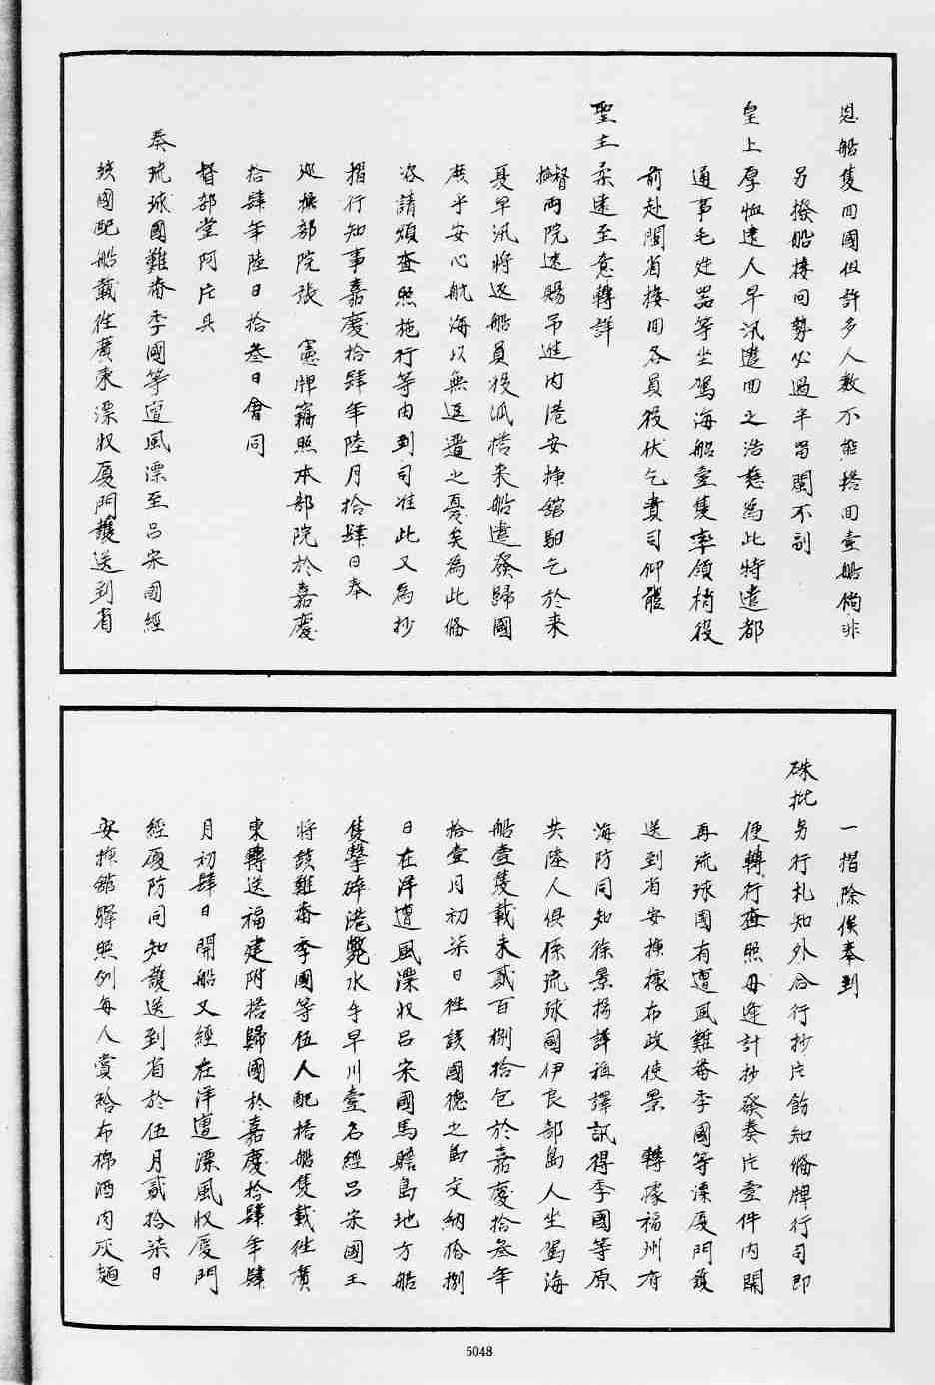 恩船隻回國但許多人數不能搭回壹船倘非
另撥船接回勢必過半留閩不副
皇上厚恤遠人早汛遣回之浩慈為此特遣都
通事毛廷器等坐駕海船壹隻率領梢役
前赴閩省接回各員役伏乞貴司仰體
聖主柔遠至意轉詳
督撫兩院速賜吊進內港安揷舘驛乞於來
夏早汛將返船員役派搭來船遣發歸國
庶乎安心航海以無逗遛之憂矣為此備
咨請煩查照施行等由到司准此又為抄
摺行知事嘉慶拾肆年陸月拾肆日奉
巡撫部院張　憲牌竊照本部院於嘉慶
拾肆年陸日拾叁日會同
督部堂阿片具
奏琉球國難番季國等遭風漂至呂宋國經
該國配船載徃廣東漂收厦門護送到省
一摺除俟奉到
硃批另行札知外合行抄片飭知備牌行司即
便轉行查照毋違計抄發奏片壹件內開
再琉球國有遭風難番季國等漂厦門護
送到省安揷據布政使景　轉據福州府
海防同知徐景揚詳稱譯訊得季國等原
共陸人俱係琉球國伊良部島人坐駕海
船壹隻載未貳百捌拾包於嘉慶拾叁年
拾壹月初柒日徃該國德之島交納拾捌
日在洋遭風漂收呂宋國馬賭島地方船
隻擊碎淹斃水手早川壹名經呂宋國王
將該難番季國等伍人配搭船隻載徃廣
東轉送福建附搭歸國於嘉慶拾肆年肆
月初肆日開船又經在洋遭漂風收厦門
經厦防同知護送到省於伍月貳拾柒日
安揷舘驛照例每人賞給布棉酒肉灰麵
5048